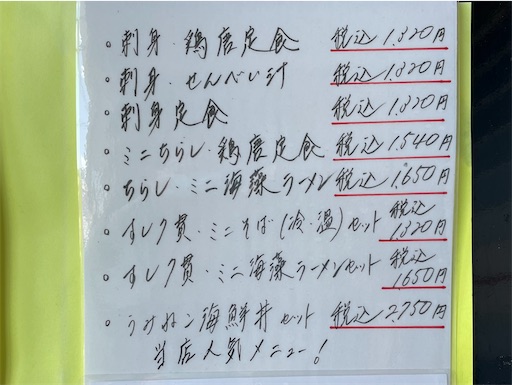 ・刺身・鶏唐定食 税込1,320円
・刺身・せんべい汁 税込1,320円
・刺身定食 税込1,320円
・ミニちらし・鶏唐定食 税込1,540円
・ちらし・ミニ海藻ラーメン 税込1,650円
・すし7貫・ミニそば(冷・温)セット 税込1,320円
・すし7貫・ミニ海藻ラーメンセット 税込1,650円
・うみねこ海鮮丼セット 税込2,750円
当店人気メニュー!